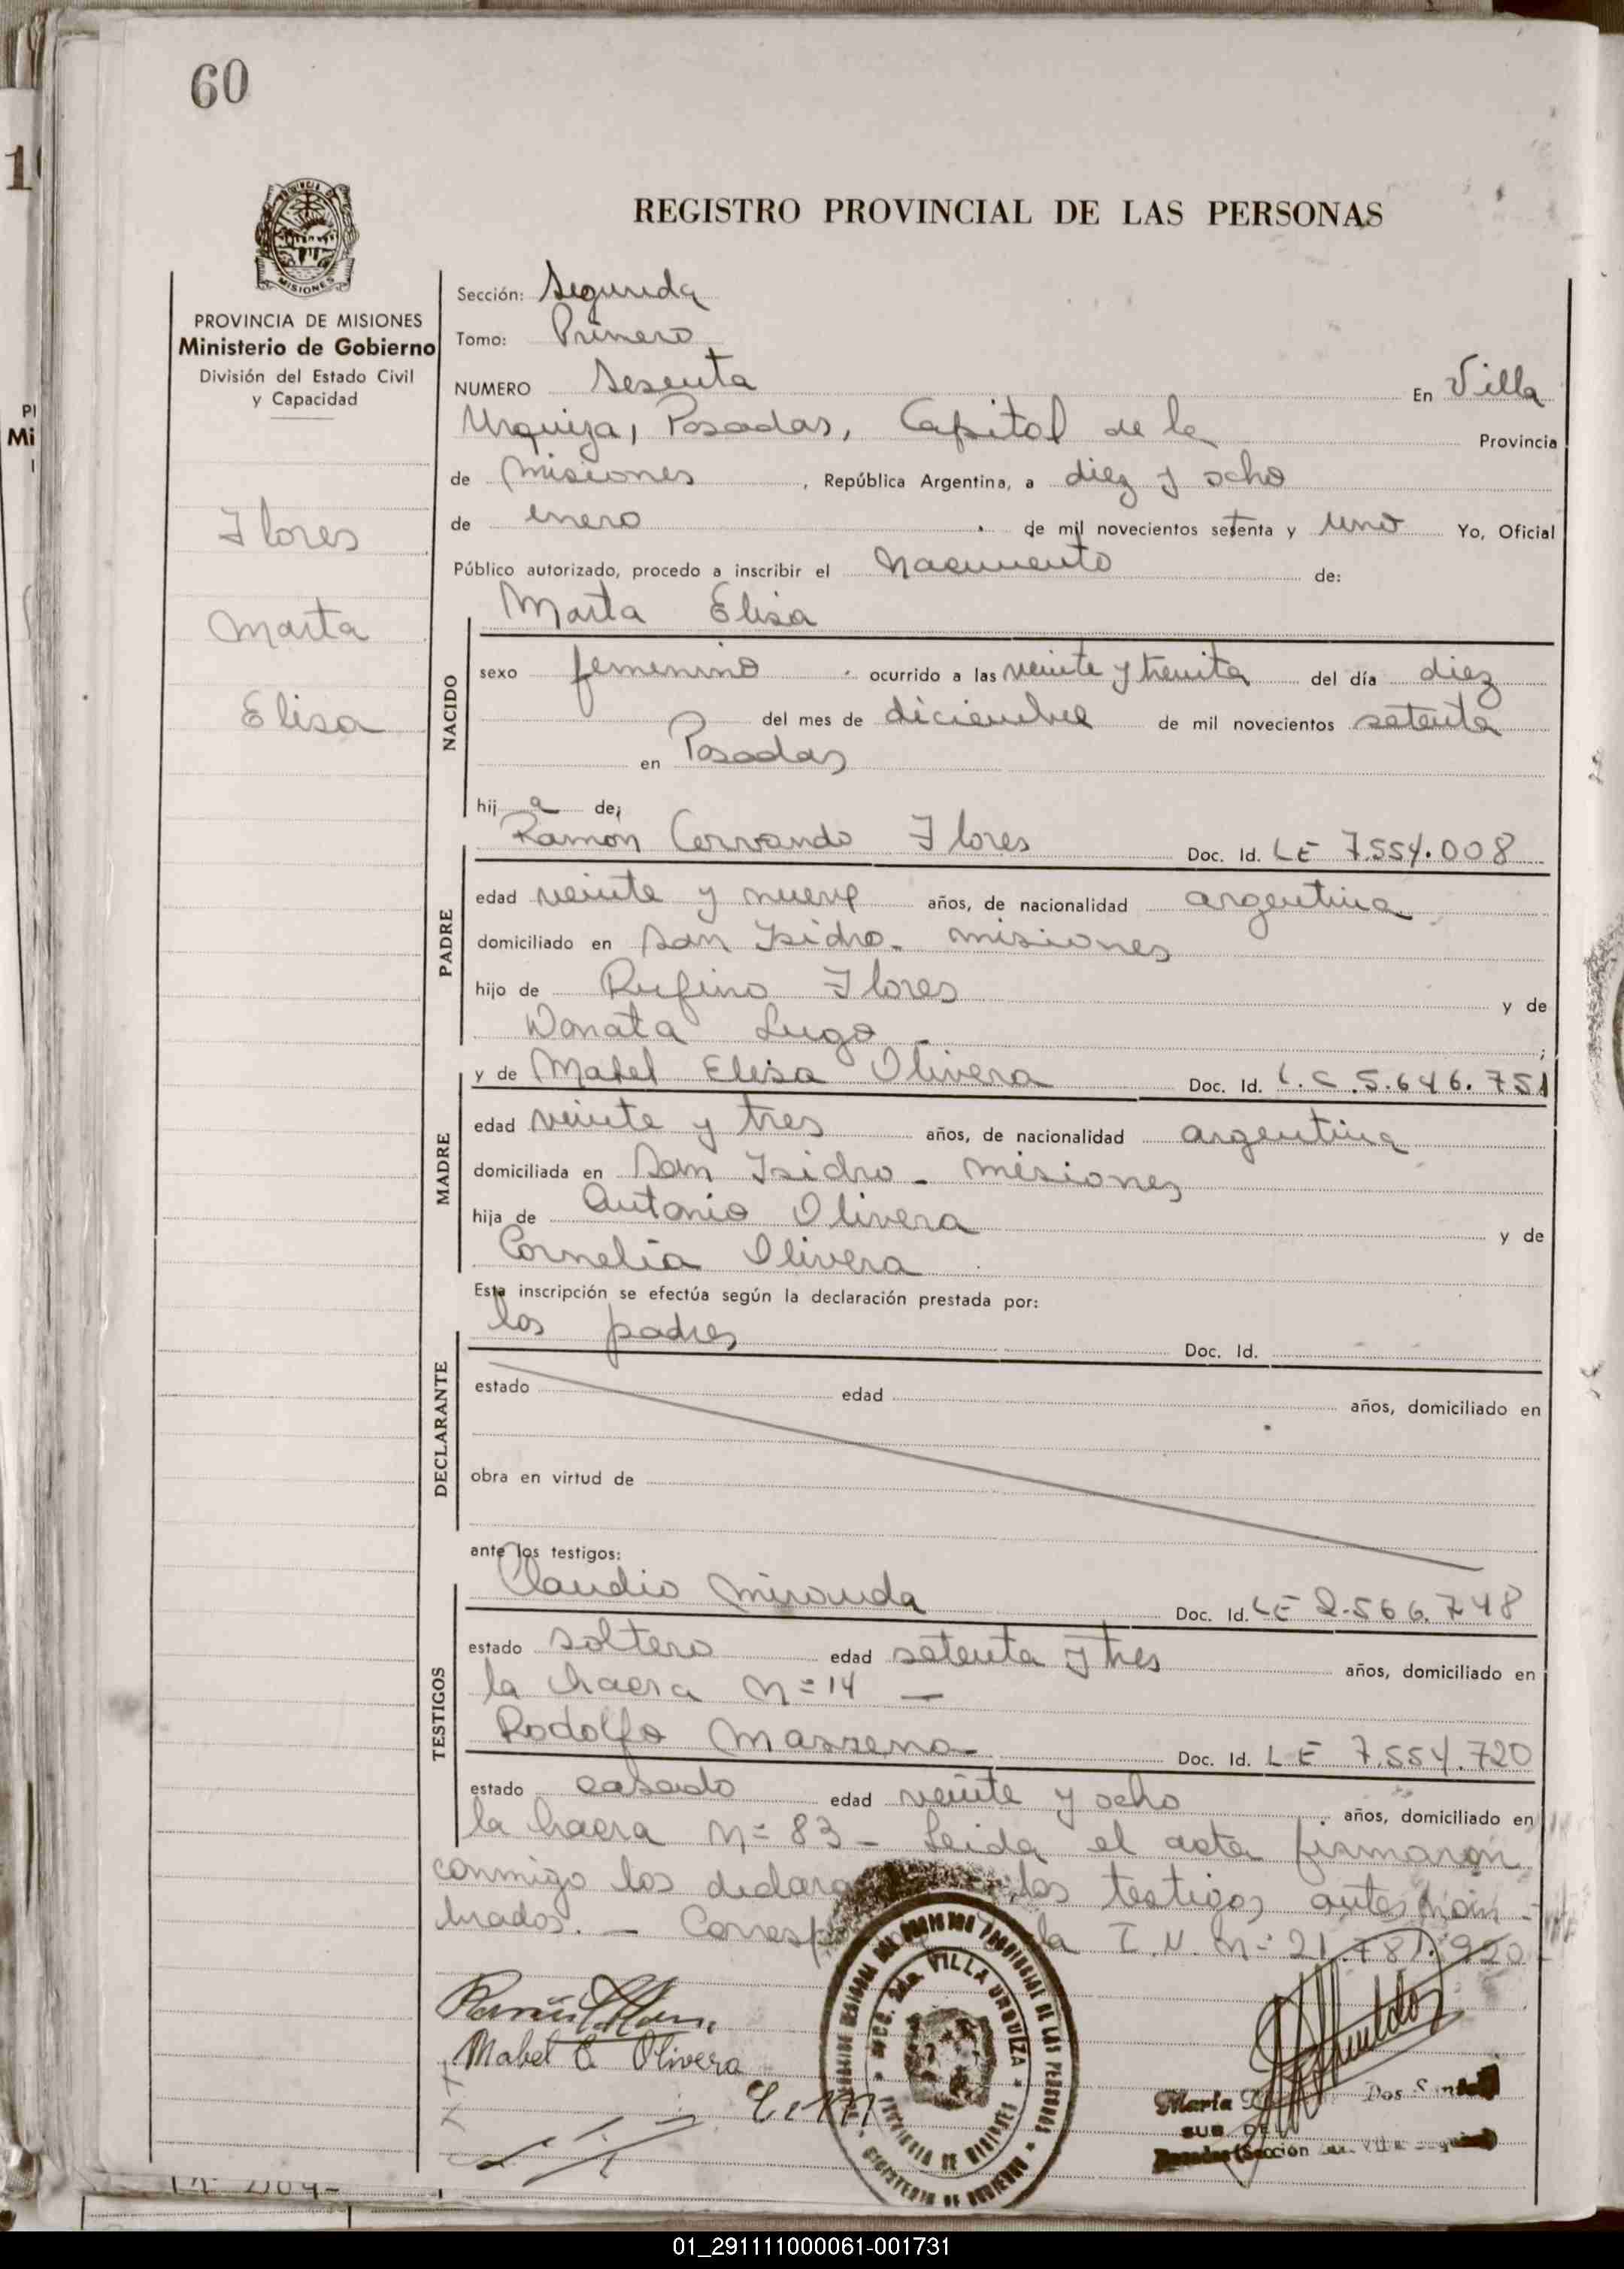 60
REGISTRO PROVINCIAL DE LAS PERSONAS
PROVINCIA DE MISIONES
Ministerio de Gobierno
División del Estado Civil
y Capacidad
Flores
Marta
Elisa
Sección: Segunda
Tomo: Primero
NUMERO Sesenta En Villa
Urquiza, Posadas, Capital de la Provincia
de Misiones, República Argentina, a diez y ocho
de enero de mil novecientos setenta y uno Yo, Oficial
Público autorizado, procedo a inscribir el Nacimiento de:
Marta Elisa
NACIDO
sexo femenino ocurrido a las veinte y treinta del día diez
del mes de diciembre de mil novecientos setenta
en Posadas
hij a de;
Ramón Cerrando Flores Doc. Id. LE 7.554.008
PADRE
edad veinte y nueve años, de nacionalidad argentina
domiciliado en San Isidro - Misiones
hijo de Rufino Flores y de
Donata Lugo ;
y de Mabel Elisa Olivera Doc. Id. L.C.5.646.751
MADRE
edad veinte y tres años, de nacionalidad argentina
domiciliada en San Isidro - Misiones
hija de Antonio Olivera y de
Cornelia Olivera
Esta inscripción se efectúa según la declaración prestada por:
los padres Doc. Id.
DECLARANTE
estado edad años, domiciliado en
obra en virtud de
ante los testigos:
Claudio Miranda Doc. Id. LE 2.566.748
TESTIGOS
estado soltero edad setenta y tres años, domiciliado en
la chacra N= 14 —
Rodolfo Doc. Id. LE 7.554.720
estado casado edad veinte y ocho años, domiciliado en
la hacra N= 83 - Leida el acta firmaron
conmigo los los testigos antes nom-
brados. — la T.N. N= 21.781.920
Mabel E. Olivera
C. M
VILLA URQUIZA
PROVINCIA DE MISIONES
MINISTERIO DE GOBIERNO
Maria Dos
SUB DE
Sección
01_291111000061-001731